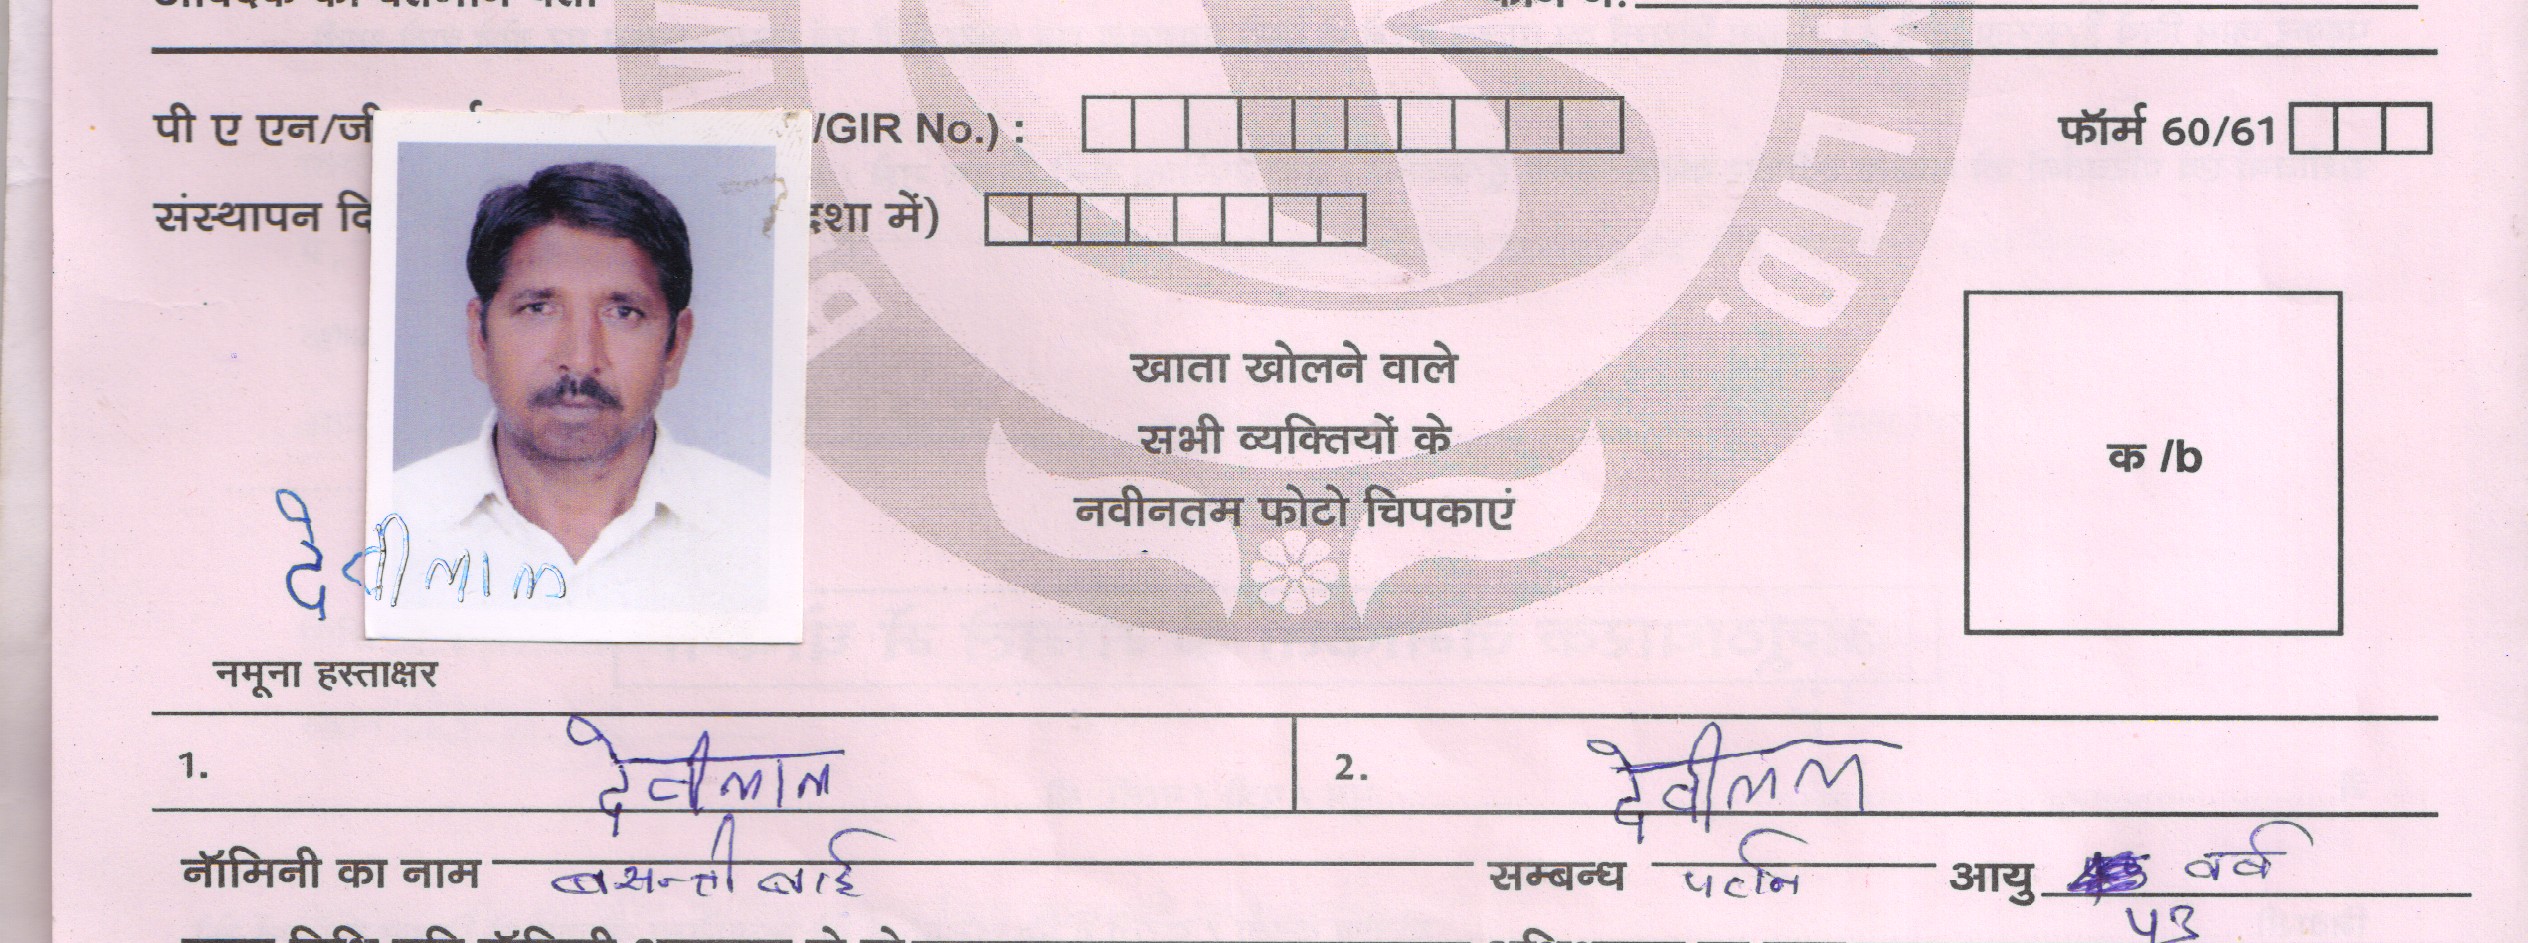 पी ए एन/जी /GIR No.) : फॉर्म 60/61
संस्थापन दि दशा में)
LTD.
खाता खोलने वाले
सभी व्यक्तियों के
नवीनतम फोटो चिपकाएं
क /b
देवीलाल
नमूना हस्ताक्षर
1. देवीलाल 2. देवीलाल
नॉमिनी का नाम बसन्ती बाई सम्बन्ध पत्नि आयु वर्ष
43